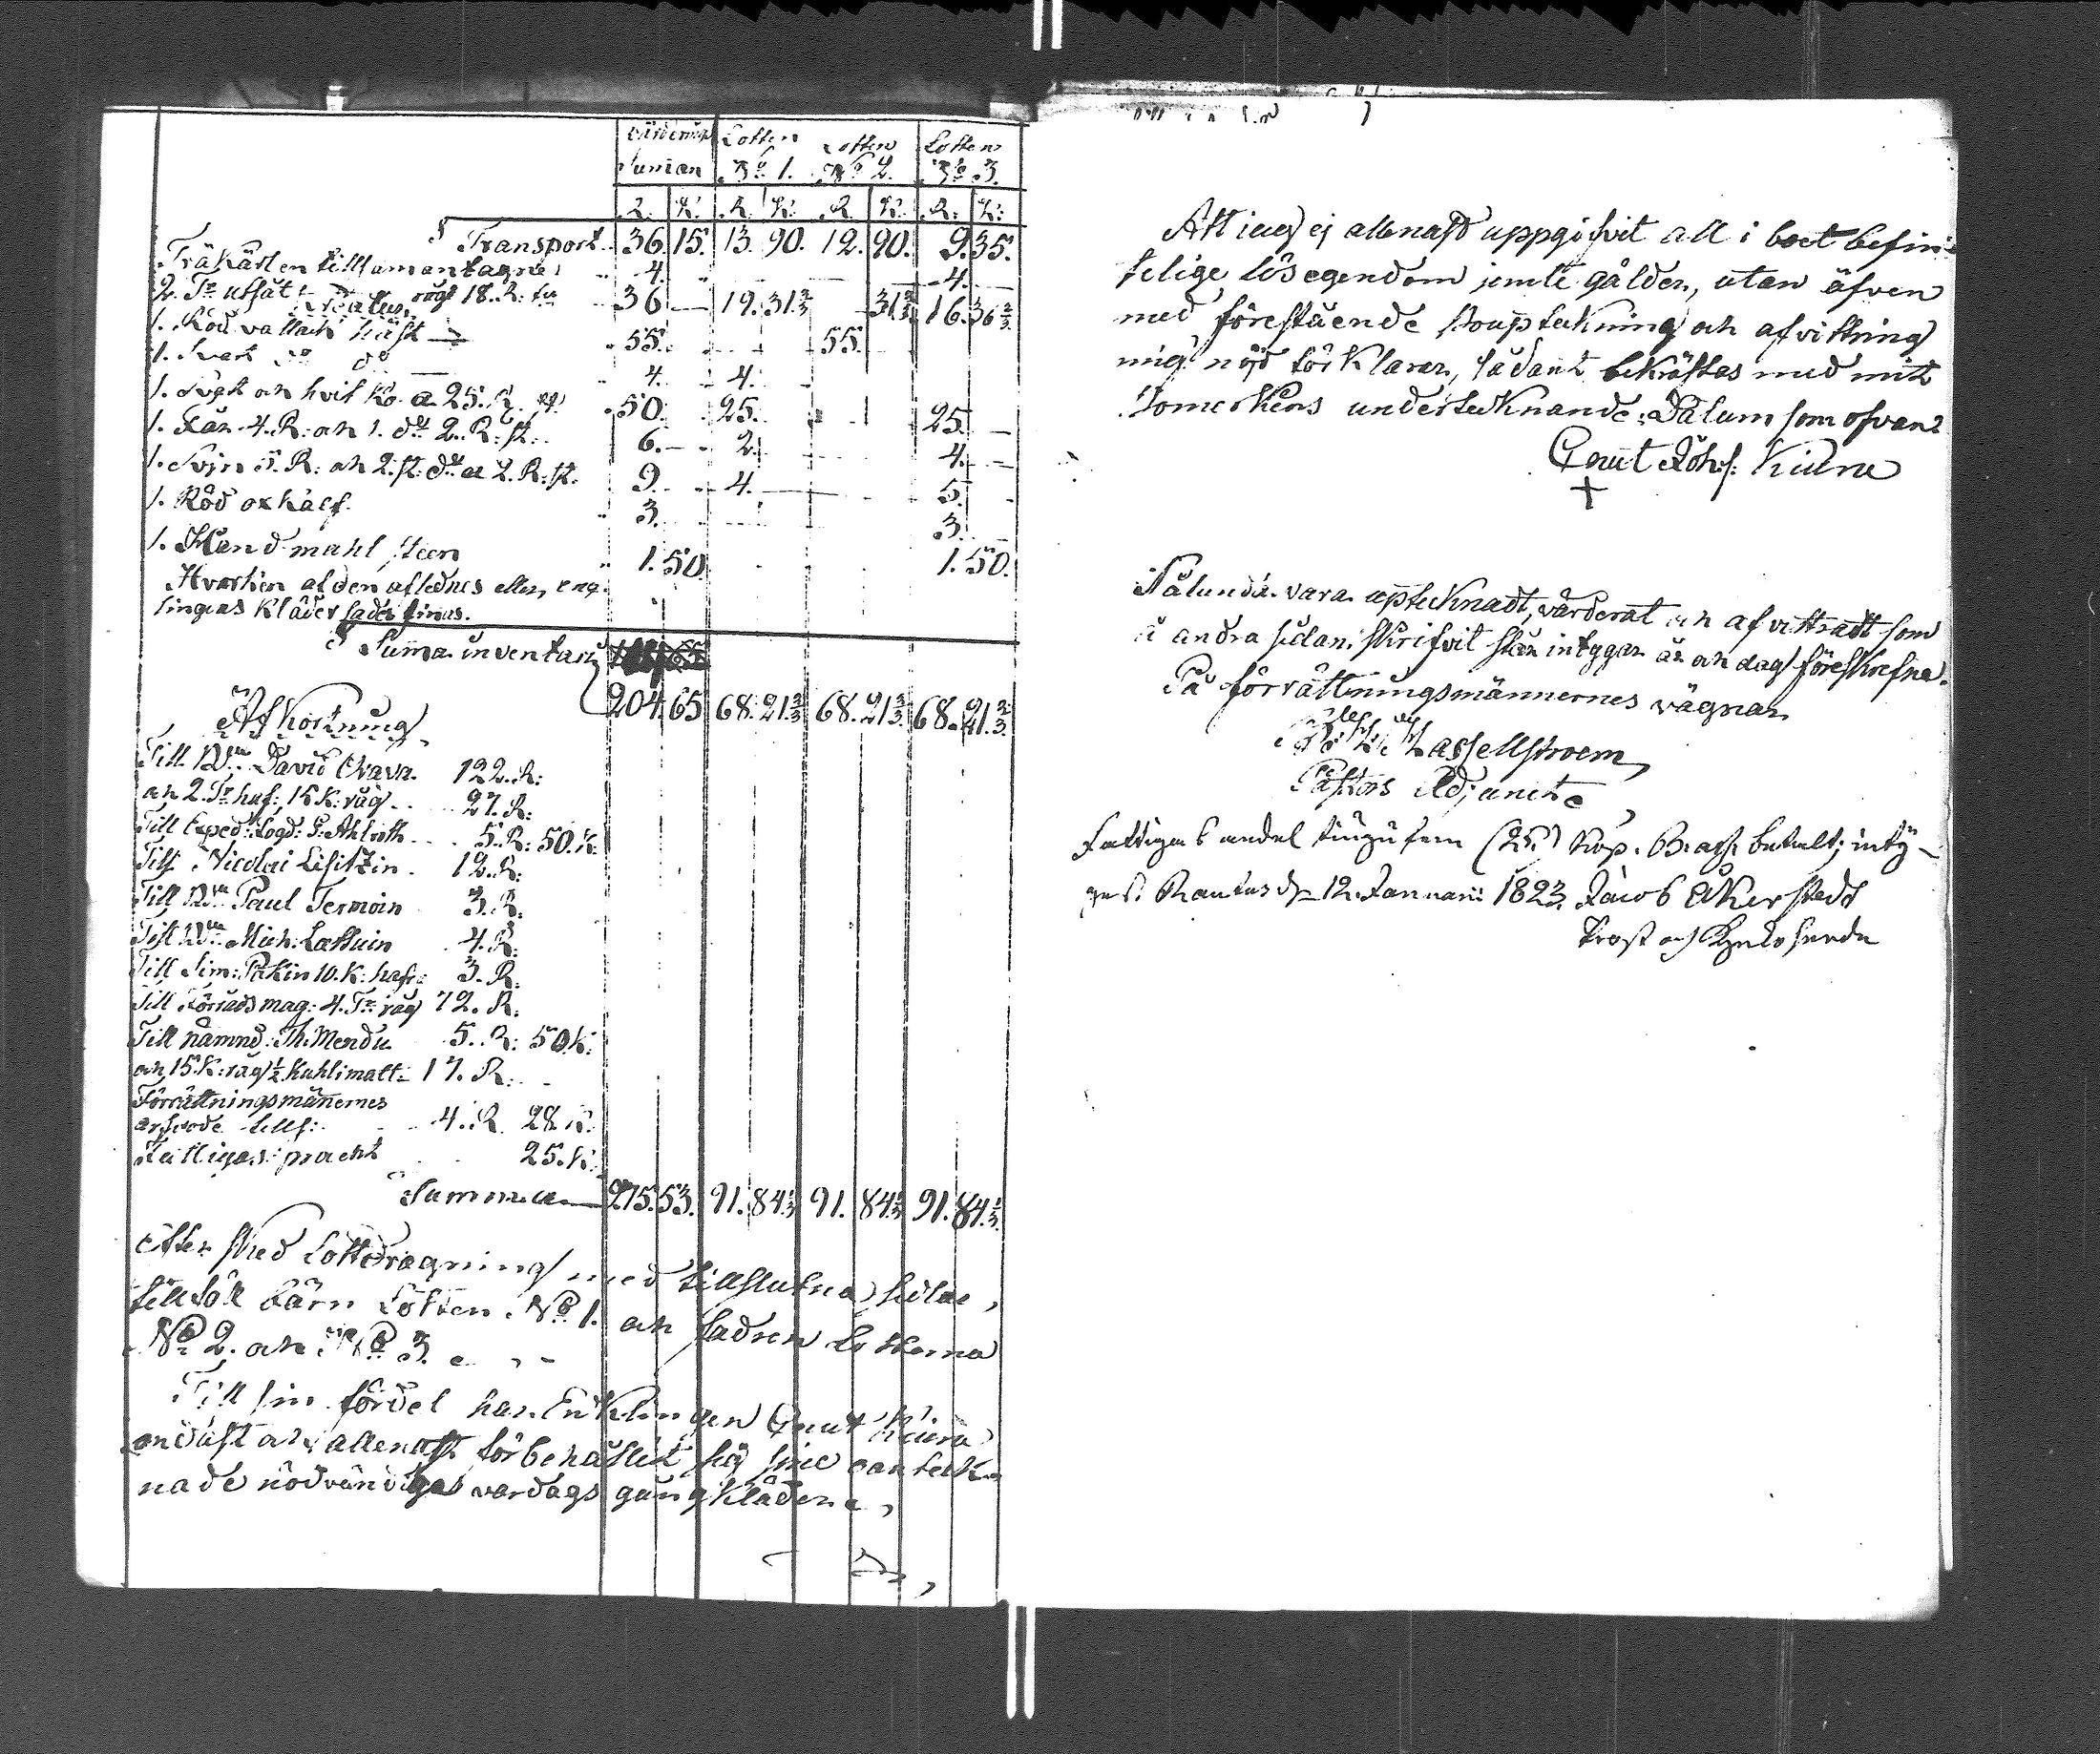 Värderings Lotten Lotten Lotten
Summan No 1. No 2. No 3.
R. K. R. K. R. K. R. K.
Transport 36 15. 13 90. 12. 90. 9. 35.
Träkärlen tillsamantagne 4. 4.
2. Tr utsäd råg 18. R. tn 36 — 19. 31 2/3 31 2/3 16. 36 2/3
1. Röd vallack häst
1. Svart do do 55. 55.
4. 4.
1. Svart och hvit Ko a 25. R. 50. 25. 25. —
1. Får 4. R: och 1. do 2. R: st. 6. — 2. 4. —
1. Svin 5. R: och 2. st: do a 2. R: st. 9. 4. — 5.
1. Röd oxkalf. 3. 3.
1. Handmahl steen 1. 50. 1. 50.
Hvarken af den aflednes eller enk-
lingens kläder sades finnas.
Suma inventarii
204 65 68. 21 2/3 68. 21 2/3 68. 21 2/3
Afkortning
Till David 122. R:
och 2. Tr haf: 15 K: råg 27. R:
Till Exped: Fogd: Ahlroth 5. R: 50. K:
Till Nicolai Lisitzin 12. R:
Till Paul Termoin 3. R.
Till Mich: 4. R:
Till Sim: Pukin 10. K: hafr: 3. R.
Till Förrådsmag: 4. Tr råg 72. R.
Till nämnd: Th: Mendu 5. R: 50 K:
och 15. K: råg 1/2 17. R.
Förrättningsmännernes
arfvode tills: 4. R. 28 K:
Fattigas: procent 25. K:
Summa 275. 53. 91. 84 1/3 91. 84 1/3 91. 84 1/3
Efter sked Lottdragning med tillslutna sedlar,
tillföll Barn Lotten No 1. och fadren Lotterna
No 2. och No 3.
Till sin fördel har Enklingen Gnut Kiuru
endast och allenast förbehållit sig sine oanteck-
nade nödvändiga vardags gångkläder,
Att jag ej allenast uppgifvit all i boet befin-
telige lösegendom jemte gälder, utan äfven
med förestående bouptekning och afvittring
mig nöjd förklarar, sådant bekräftas med mit
bomerkens undertecknande. Datum som ofvan
Gnut Joh:s: Kiuru
+
Sålunda vara uptecknadt, värderat och afvittradt som
å andra sidan skrifvit står intygar år och dag föreskrefne.
På förrättningsmännernes vägnar
Hassellstroem,
Pastors Adjunct
Fattiges andel tiugu fem (25.) Kop. B. ass. betalt; inty-
gas. Rautus d. 12. Januarii 1823. Jacob Åkerstedt
Prost och Kyrkoherde